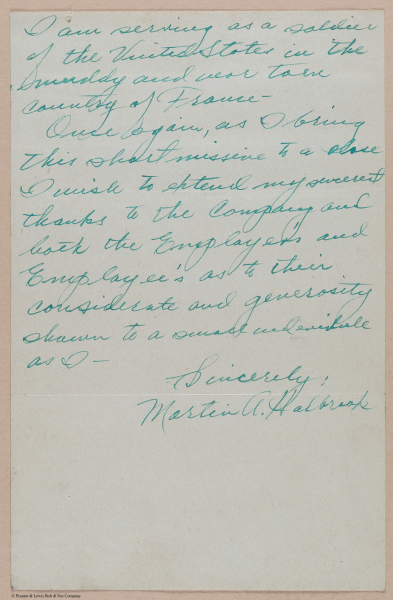 I am serving as a soldier
of the United States in the
muddy and war torn
country of France-
Once again, as I bring
this short missive to a close
I wish to extend my sincerest
thanks to the Company and
both the Employer's and
Employee's as to their
considerate and generosity
shown to a small individule
as I-
Sincerely,
Martin A. Holbrook